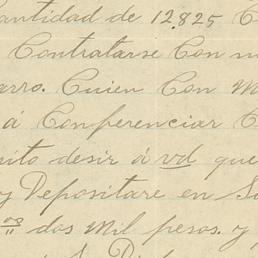 antidad de 12,825 C
Contratarse Con m
arro. Quien Con M
á Conferenciar C
nito desir á vd que
y Depositare en Sa
os dos Mil pesos. y